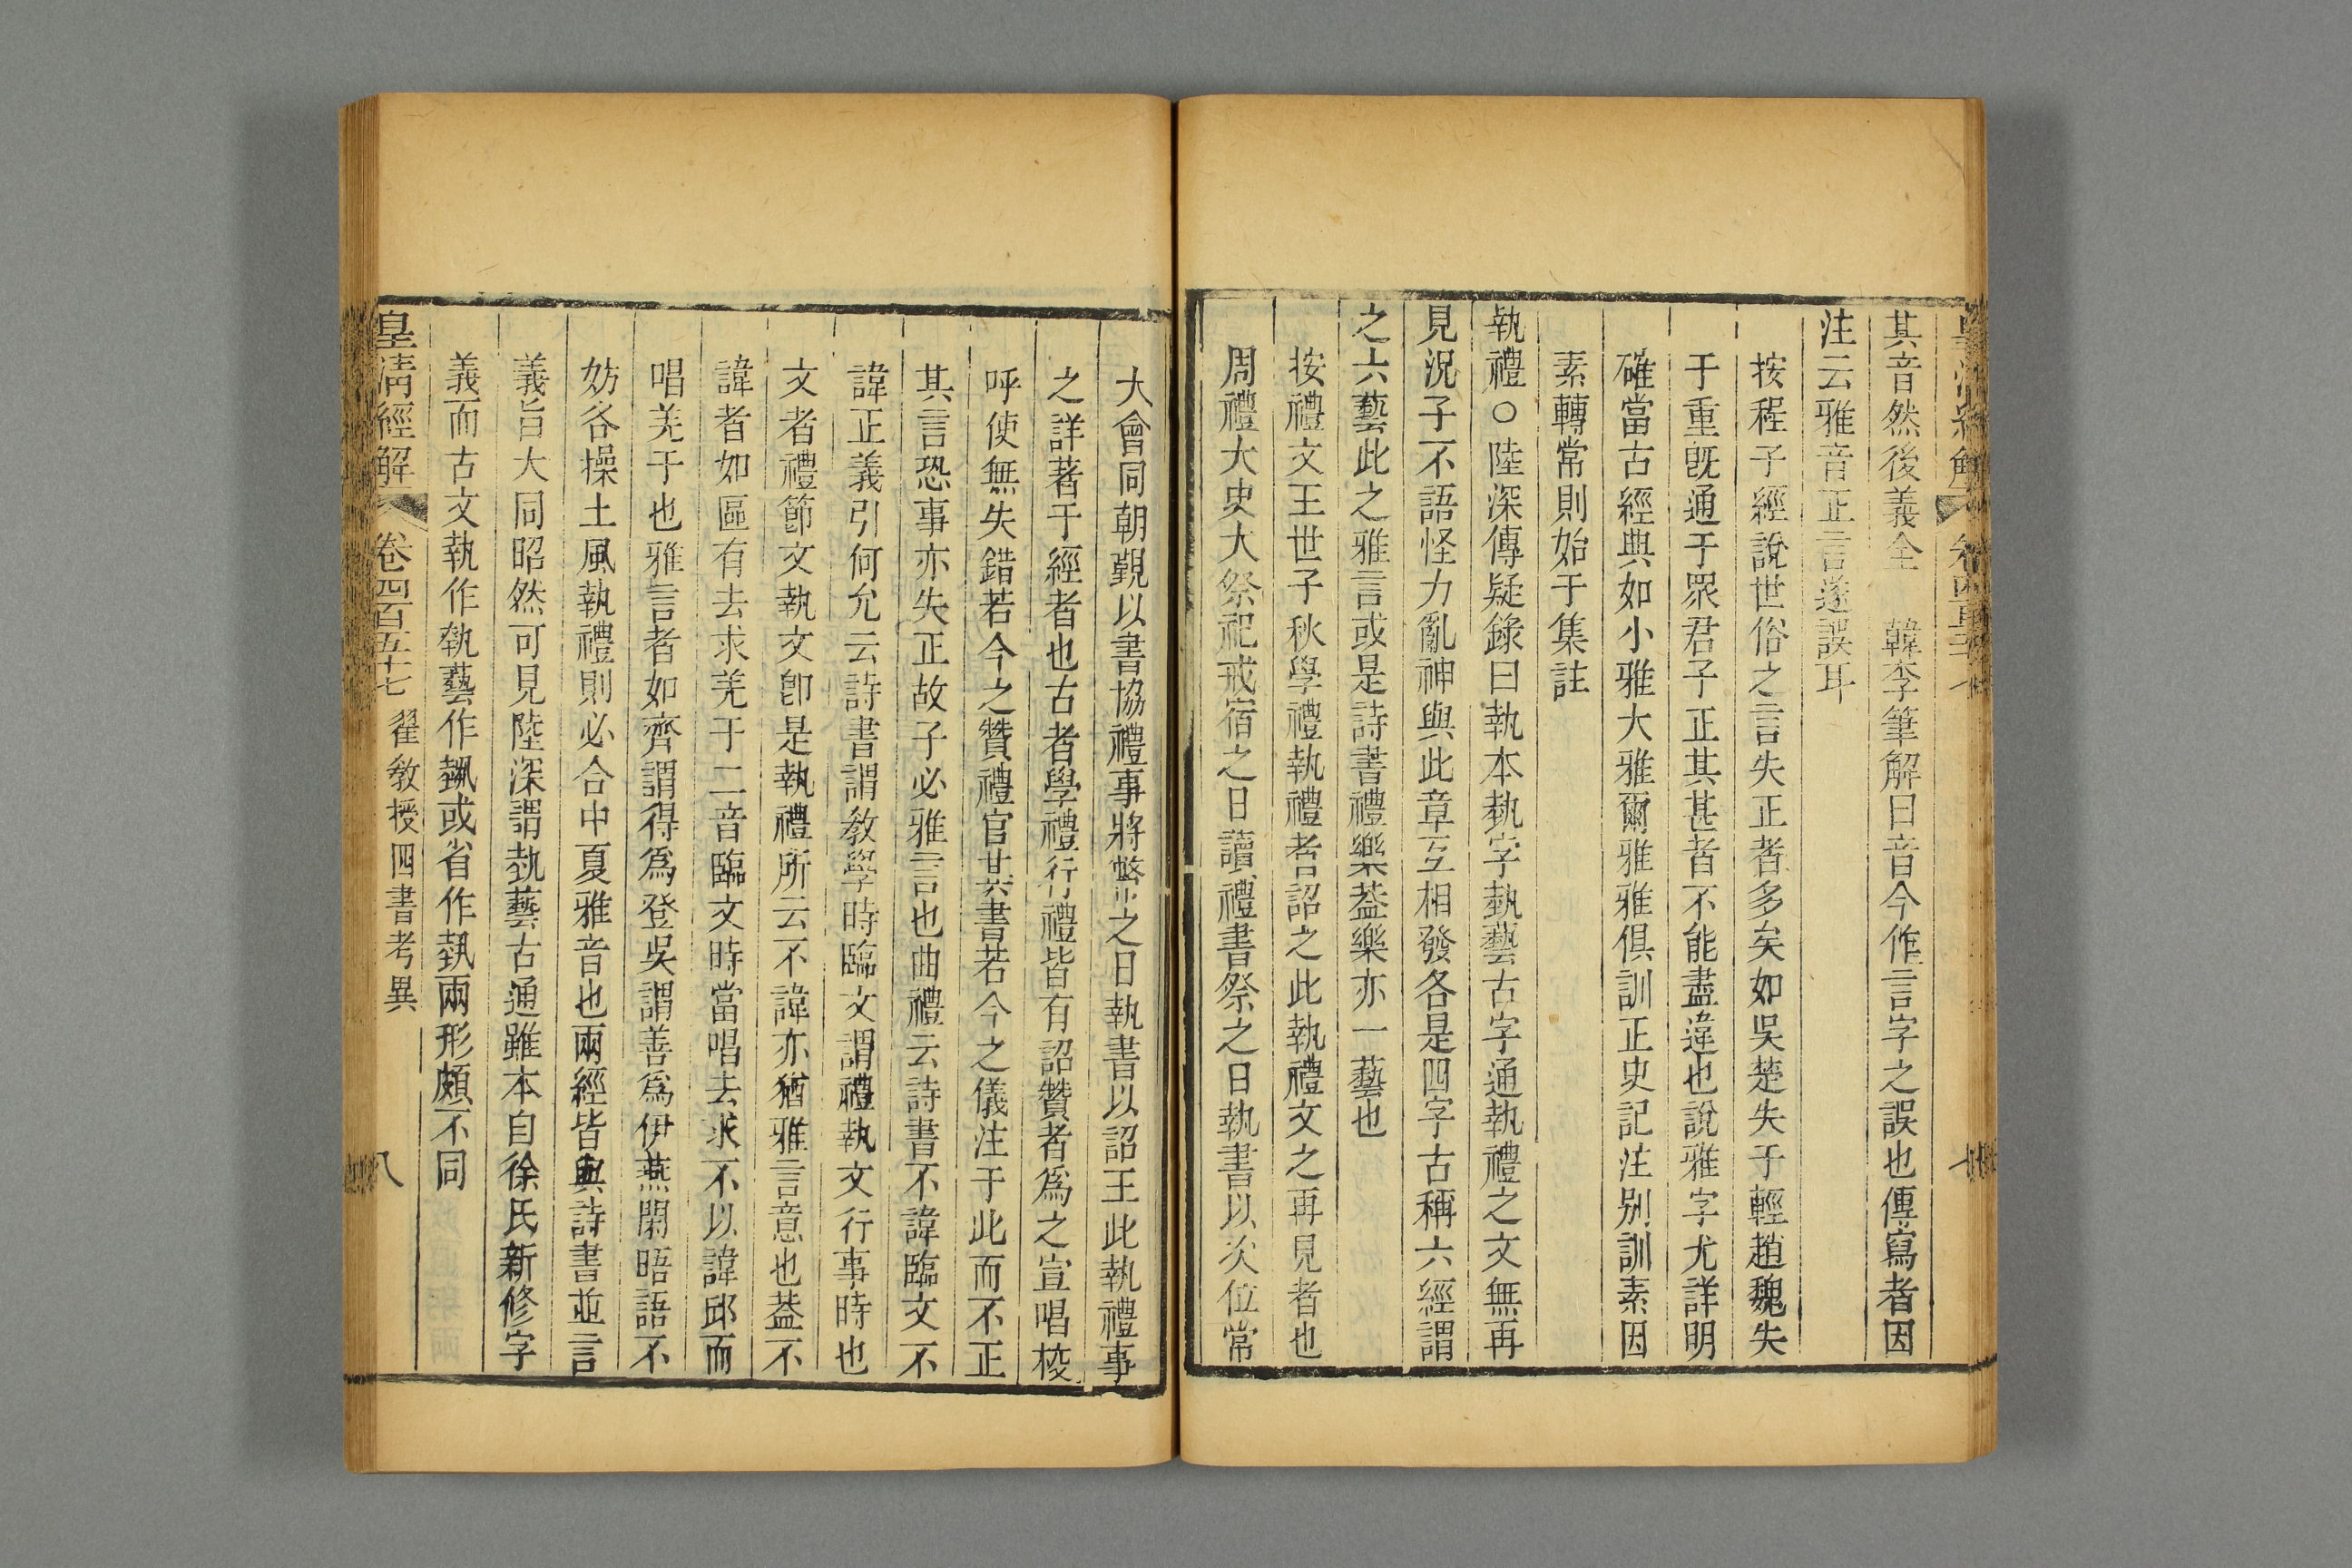 其音然後義全　韓李筆解曰音今作言字之誤也傳寫者因
注云雅音正言遂誤耳
按程子經說世俗之言失正者多矣如吳楚失于輕趙魏失
于重旣通于眾君子正其甚者不能盡違也說雅字尤詳明
確當古經典如小雅大雅爾雅雅俱訓正史記注别訓素因
素轉常則始于集註
執禮○陸深傳疑錄曰執本埶字埶藝古字通執禮之文無再
見況子不語怪力亂神與此章互相發各是四字古稱六經謂
之六藝此之雅言或是詩書禮樂葢樂亦一藝也
按禮文王世子秋學禮執禮者詔之此執禮文之再見者也
周禮大史大祭祀戒宿之日讀禮書祭之日執書以次位常
大會同朝覲以書協禮事將幣之日執書以詔王此執禮事
之詳著于經者也古者學禮行禮皆有詔贊者爲之宣唱校
呼使無失錯若今之贊禮官其書若今之儀注于此而不正
其言恐事亦失正故子必雅言也曲禮云詩書不諱臨文不
諱正義引何允云詩書謂敎學時臨文謂禮執文行事時也
文者禮節文執文卽是執禮所云不諱亦猶雅言意也葢不
諱者如區有去求羌于二音臨文時當唱去求不以諱邱而
唱羌于也雅言者如齊謂得爲登吳謂善爲伊燕閒晤語不
妨各操土風執禮則必合中夏雅音也兩經皆與詩書並言
義旨大同昭然可見陸深謂埶藝古通雖本自徐氏新修字
義而古文執作𡙕藝作埶或省作埶兩形頗不同
皇淸經解　卷四百五十七　翟敎授四書考異　八